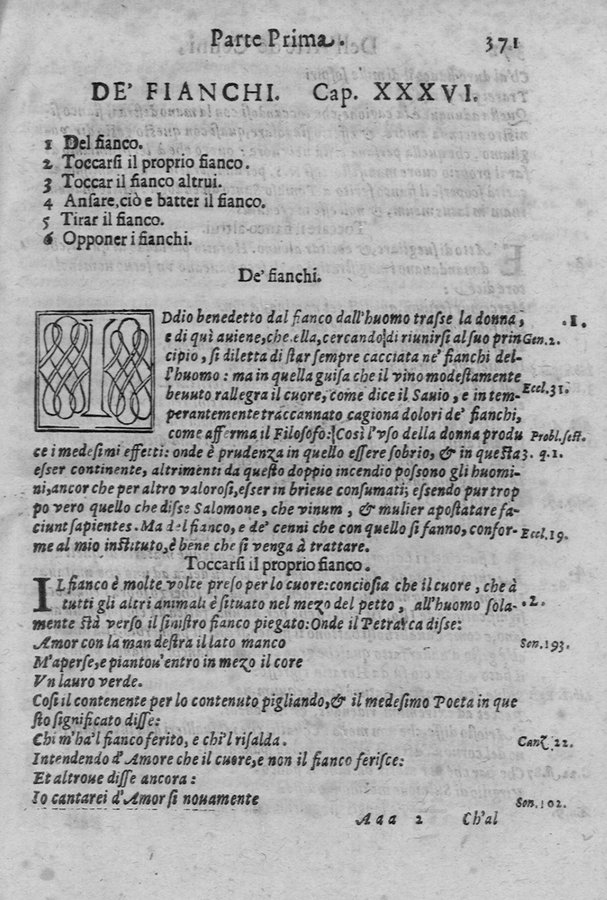 Parte Prima. 371
DE' FIANCHI. Cap. XXXVI.
1 Del fianco.
2 Toccarsi il proprio fianco.
3 Toccar il fianco altrui.
4 Ansare, ciò e batter il fianco.
5 Tirar il fianco.
6 Opponer i fianchi.
De' fianchi.
IDdio benedetto dal fianco dall'huomo trasse la donna, .1.
e di quì auiene, che ella, cercando di riunirsi al suo prin Gen. 2.
cipio, si diletta di star sempre cacciata ne' fianchi del-
l'huomo: ma in quella guisa che il vino modestamente
beuuto rallegra il cuore, come dice il Sauio, e in tem- Eccl. 31.
perantemente traccannato cagiona dolori de' fianchi,
come afferma il Filosofo: Così l'vso della donna produ Probl. sect.
ce i medesimi effetti: onde è prudenza in quello essere sobrio, & in questa 3. q. 1.
esser continente, altrimenti da questo doppio incendio possono gli huomi-
ni, ancor che per altro valorosi, esser in brieue consumati; essendo pur trop
po vero quello che disse Salomone, che vinum, & mulier apostatare fa-
ciunt sapientes. Ma del fianco, e de' cenni che con quello si fanno, confor- Eccl. 19.
me al mio instituto, è bene che si venga à trattare.
Toccarsi il proprio fianco.
IL fianco è molte volte preso per lo cuore: conciosia che il cuore, che à
tutti gli altri animali è situato nel mezo del petto, all'huomo sola- .2.
mente stà verso il sinistro fianco piegato: Onde il Petrarca disse:
Amor con la man destra il lato manco Son. 193.
M'aperse, e piantou' entro in mezo il core
Vn lauro verde.
Così il contenente per lo contenuto pigliando, & il medesimo Poeta in que
sto significato disse:
Chi m'ha'l fianco ferito, e chi'l risalda. Canz. 22.
Intendendo d'Amore che il cuore, e non il fianco ferisce:
Et altroue disse ancora:
Io cantarei d'Amor si nouamente Son. 102.
Aaa 2 Ch'al